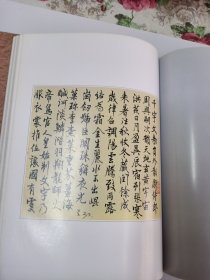 千字文敕員外散騎侍郎
周興嗣次韻天地玄黃宇宙
洪荒日月盈昃辰宿列張寒
來暑往秋收冬藏閏餘成
歲律召調陽雲騰致雨露
結為霜金生麗水玉出崑
崗劍號巨闕珠稱夜光
菓珍李柰菜重芥薑海
鹹河淡鱗潛羽翔龍師火
帝鳥官人皇始制文字乃
服衣裳推位讓國有虞